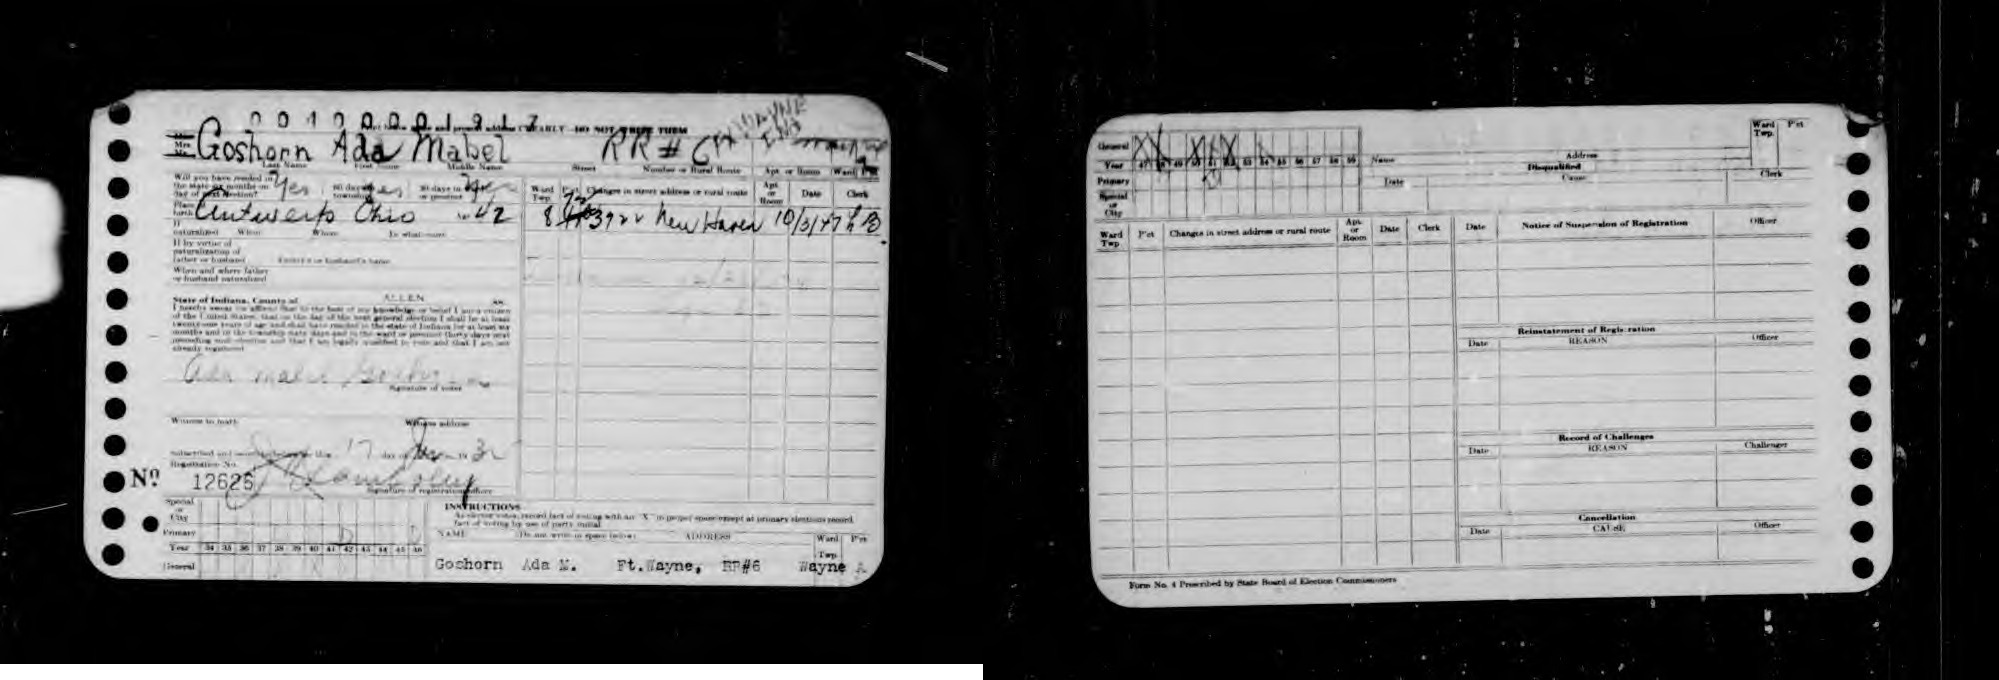 0 0 1 0 0 0 0 1 9 1 7
CLEARLY—DO NOT WRITE THEM
WAYNE
Goshorn Ada Mabel RR # 6
Last Name First Name Middle Name Street Number or Rural Route Apt. or Room Ward
Will you have resided in
the state six months on Yes 60 days in Yes 30 days in
day of next election? township or precinct
Ward Twp. P'ct Changes in street address or rural route Apt. or Room Date Clerk
Place birth Antwerp Ohio 42
8 3922 New Haven 10/3/47
If
naturalized When Where In what court
If by virtue of
naturalization of
father or husband Father's or husband's name
When and where father
or husband naturalized
State of Indiana, County of ALLEN ss.
I hereby swear (or affirm) that to the best of my knowledge or belief I am a citizen
of the United States, that on the day of the next general election I shall be at least
twenty-one years of age and shall have resided in the state of Indiana for at least six
months and in the township sixty days and in the ward or precinct thirty days next
preceding such election and that I am legally qualified to vote and that I am not
already registered
Ada Mabel Goshorn
Signature of voter
Witness to mark Witness address
Subscribed and sworn to before me this 17 day of 19
Registration No.
Nº 12626
Signature of registration officer
Special or City
Primary D D
Year 34 35 36 37 38 39 40 41 42 43 44 45 46
General
INSTRUCTIONS
As elector votes, record fact of voting with an "X" in proper space except at primary elections record
fact of voting by use of party initial
NAME (Do not write in space below) ADDRESS Ward Twp. P'ct
Goshorn Ada M. Ft.Wayne, RR#6 Wayne A
General X X X X X
Year 47 48 49 50 51 52 53 54 55 56 57 58 59
Primary
Special or City
Name Address Ward Twp. P'ct
Disqualified
Date Cause Clerk
Ward Twp P'ct Changes in street address or rural route Apt. or Room Date Clerk
Date Notice of Suspension of Registration Officer
Reinstatement of Registration
Date REASON Officer
Record of Challenges
Date REASON Challenger
Cancellation
Date CAUSE Officer
Form No. 4 Prescribed by State Board of Election Commissioners